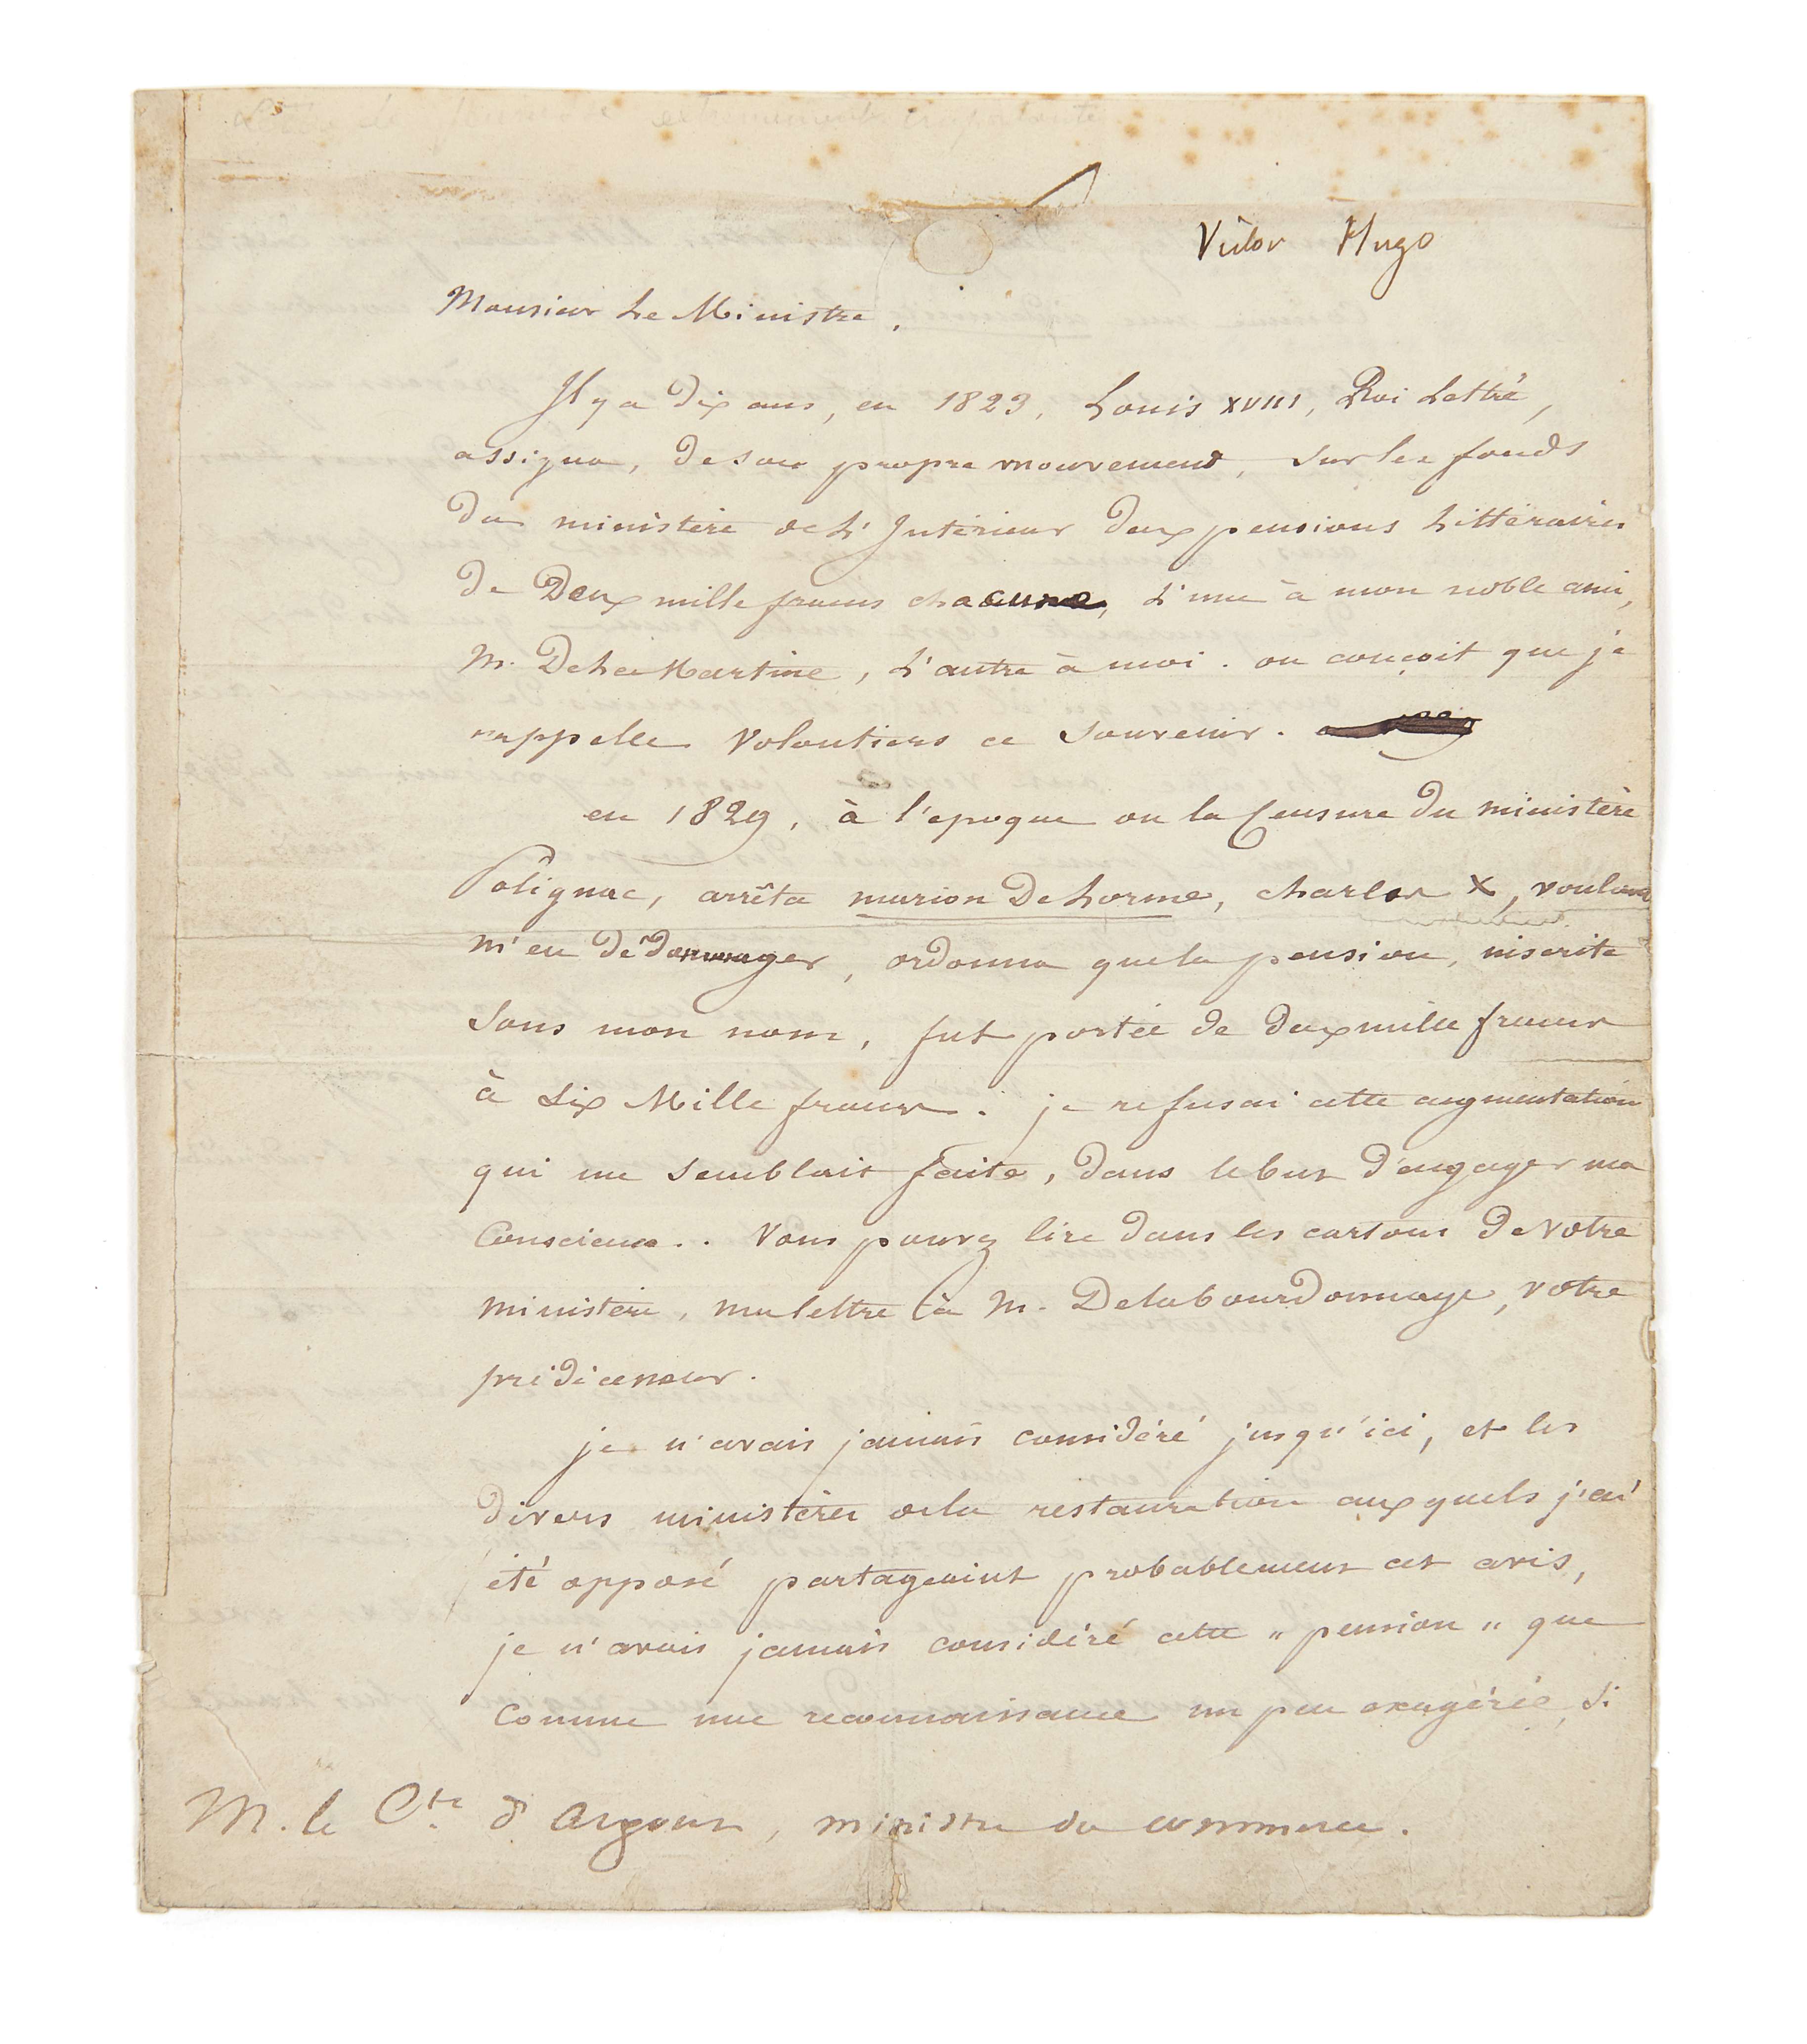 Victor Hugo
Monsieur Le Ministre,
Il y a Dix ans, en 1823, Louis XVIII, Roi Lettré,
assigna, De son propre mouvement, sur les fonds
Du ministère de L'Intérieur Deux pensions Littéraires
De Deux mille francs chacune, L'une à mon noble ami,
M. De La Martine, L'autre à moi. on conçoit que je
rappelle Volontiers ce Souvenir.
en 1829, à l'epoque ou la Censure Du ministère
Polignac, arrêta marion De Lorme, charles X, voulant
m'en Dédommager, ordonna que la pension, inscrite
Sous mon nom, fut portée de Deux mille francs
à Six Mille francs. je refusai cette augmentation
qui me Semblait faite, Dans le but D'engager ma
Conscience.. Vous pouvez lire Dans les cartons De Votre
ministère, ma lettre à M. Delabourdonnaye, votre
prédicesseur.
je n'avais jamais considéré jusqu'ici, et les
Divers ministères de la restauration auxquels j'ai
été opposé partageaient probablement cet avis,
je n'avais jamais considéré cette " pension " que
Comme une reconnaissance un peu exagérée, Si
M. le Cte d'Argout, ministre du commerce.